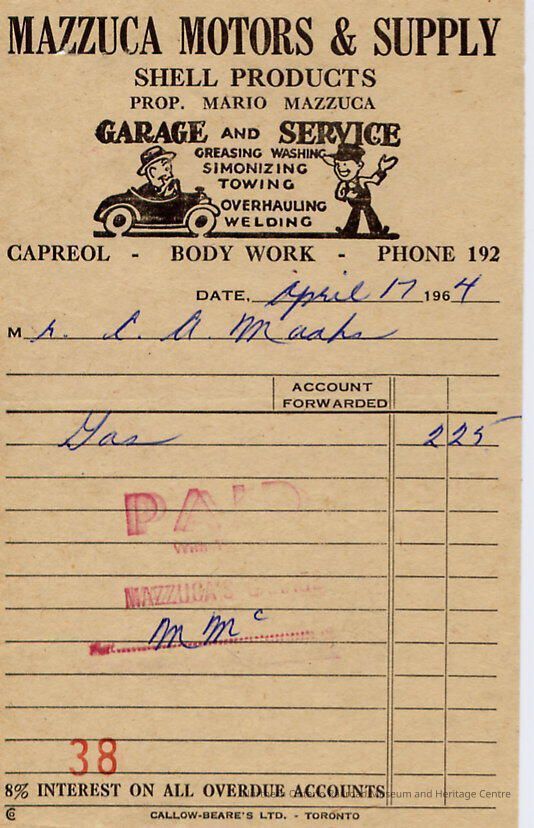 MAZZUCA MOTORS & SUPPLY
SHELL PRODUCTS
PROP. MARIO MAZZUCA
GARAGE AND SERVICE
GREASING WASHING
SIMONIZING
TOWING
OVERHAULING
WELDING
CAPREOL - BODY WORK - PHONE 192
DATE, April 17 1964
Mr. A. Maahs
ACCOUNT
FORWARDED
Gas 2 25
PAID
MAZZUCA'S GARAGE
M Mc
38
8% INTEREST ON ALL OVERDUE ACCOUNTS
Northern Ontario Railroad Museum and Heritage Centre
CALLOW-BEARE'S LTD. - TORONTO